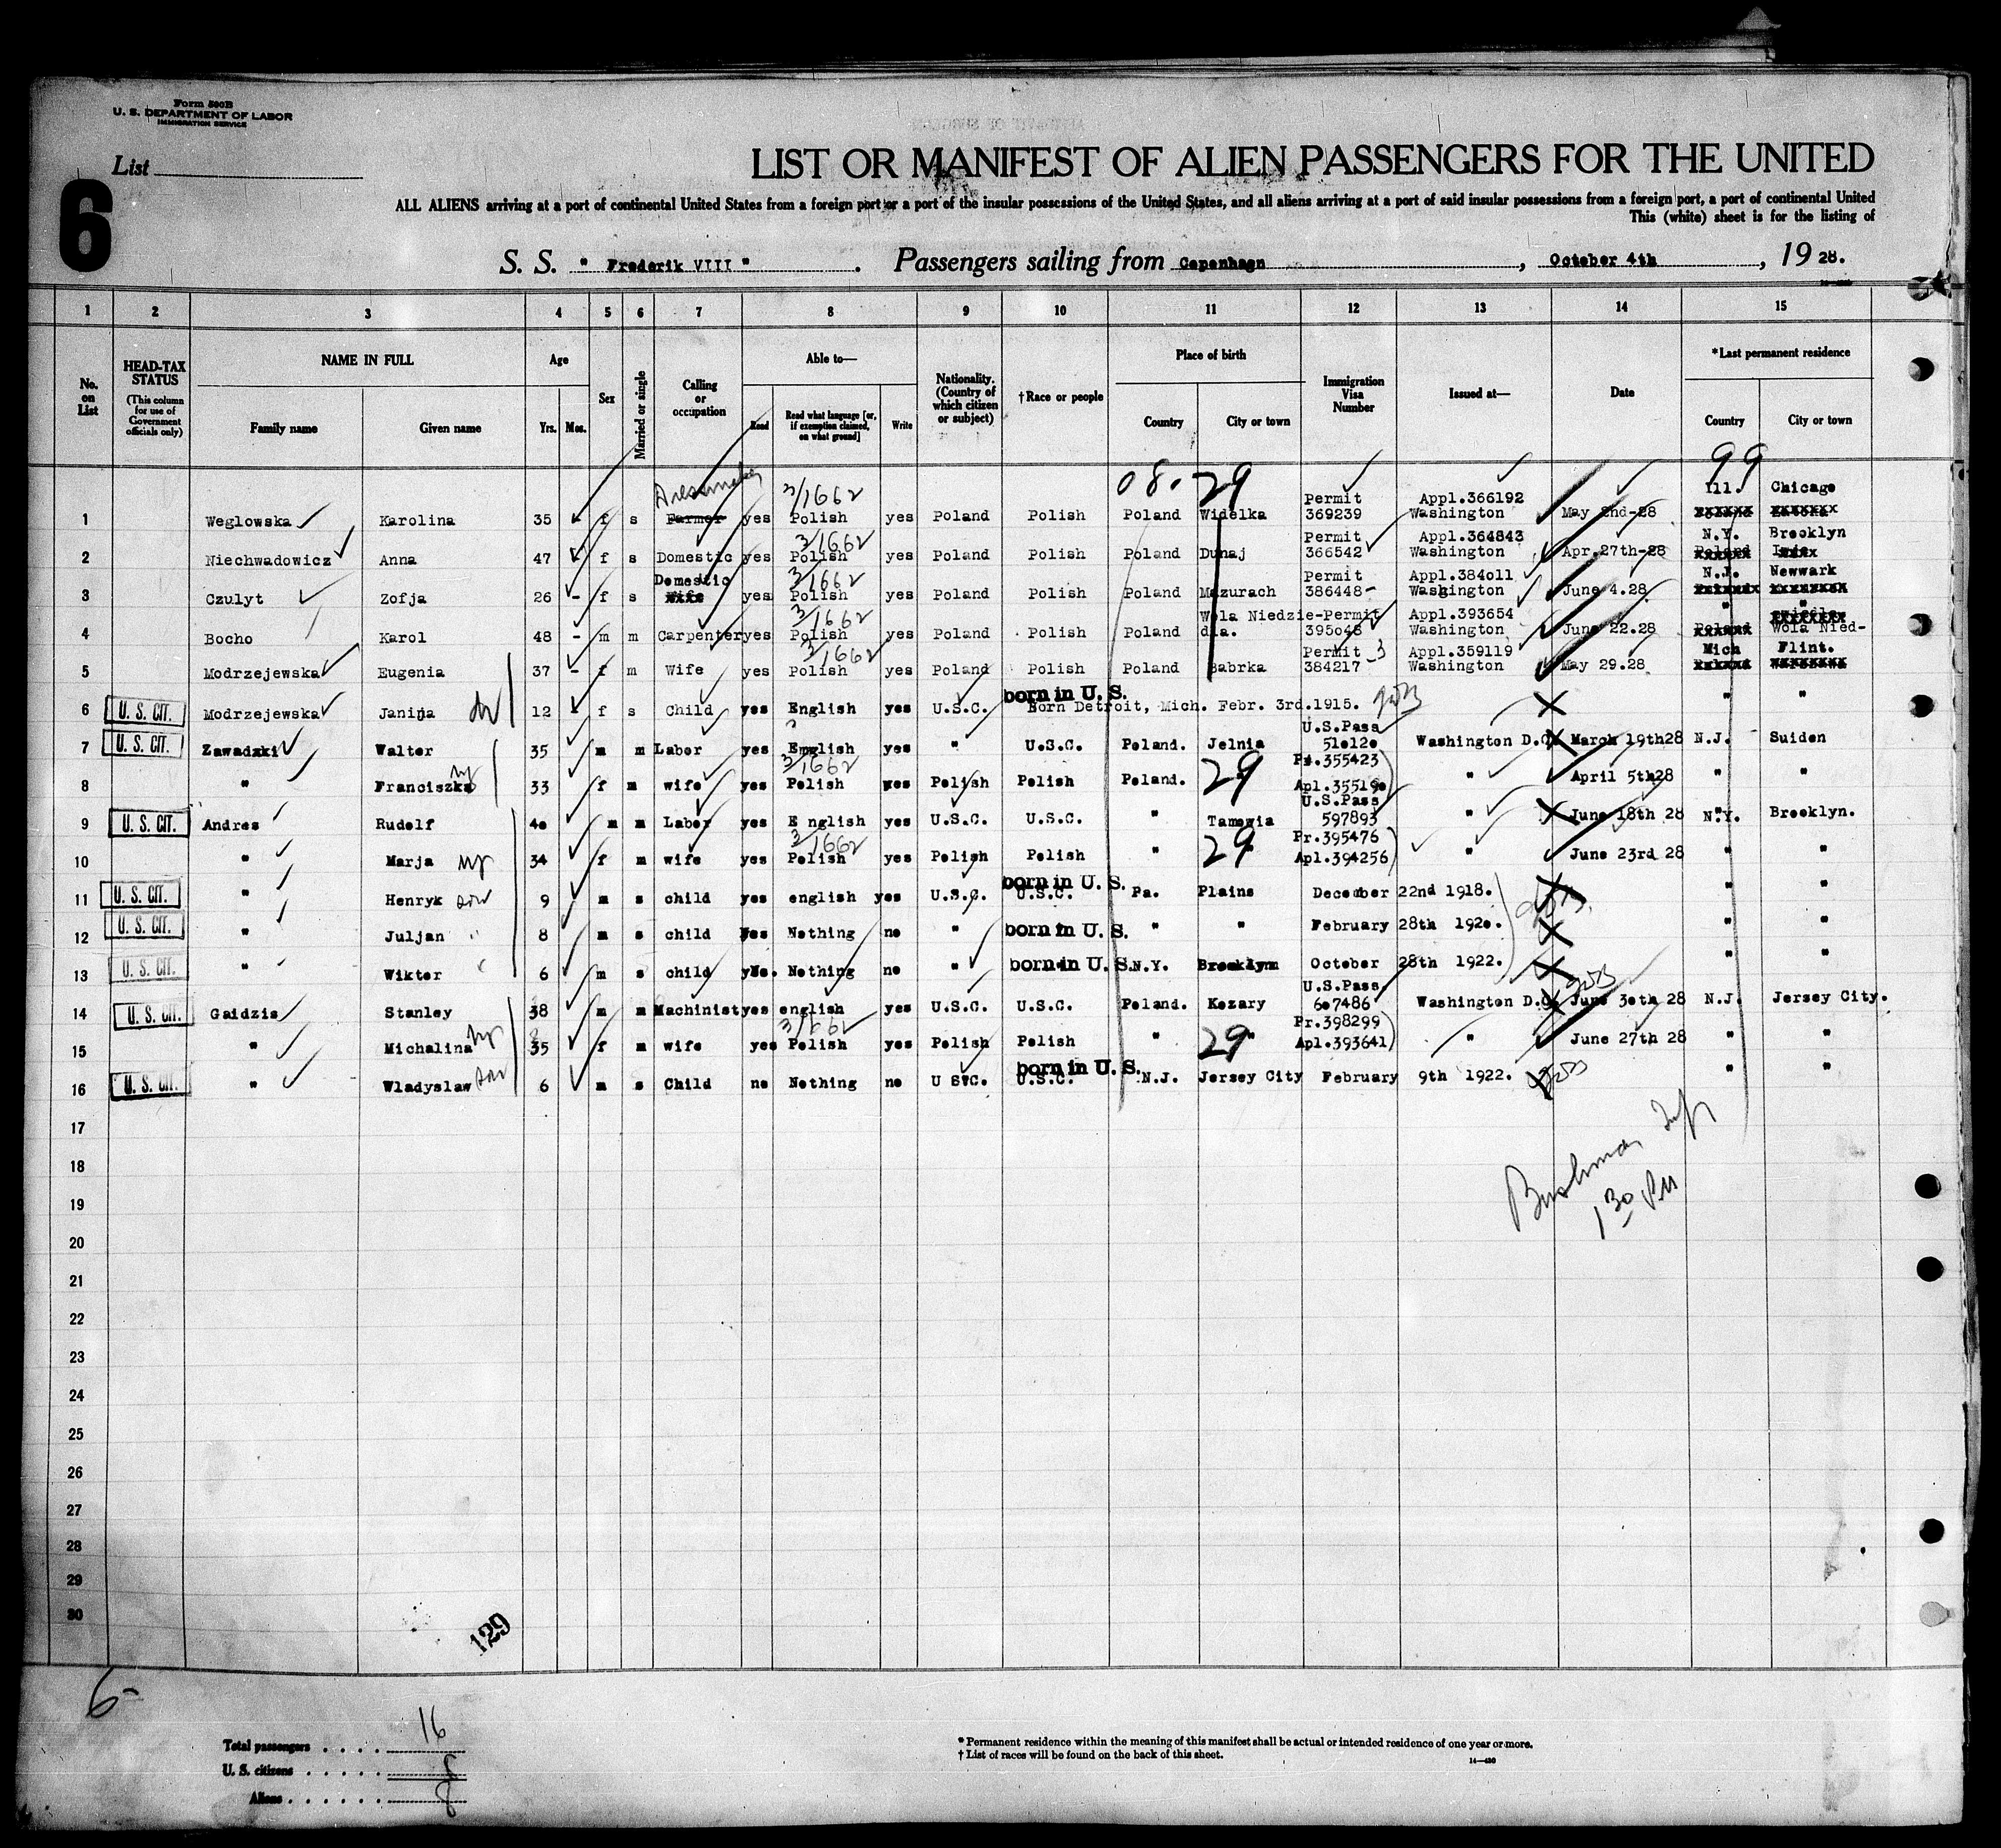 Form 500B
U. S. DEPARTMENT OF LABOR
IMMIGRATION SERVICE
List
6
LIST OR MANIFEST OF ALIEN PASSENGERS FOR THE UNITED
ALL ALIENS arriving at a port of continental United States from a foreign port or a port of the insular possessions of the United States, and all aliens arriving at a port of said insular possessions from a foreign port, a port of continental United
This (white) sheet is for the listing of
S. S. " Frederik VIII " . Passengers sailing from Copenhagn , October 4th , 19 28.
1 2 3 4 5 6 7 8 9 10 11 12 13 14 15
No. on List
HEAD-TAX STATUS
(This column for use of Government officials only)
NAME IN FULL
Family name Given name
Age
Yrs. Mos.
Sex
Married or single
Calling or occupation
Able to—
Read Read what language [or, if exemption claimed, on what ground] Write
Nationality. (Country of which citizen or subject)
†Race or people
Place of birth
Country City or town
Immigration Visa Number
Issued at—
Date
*Last permanent residence
Country City or town
08. 29 99
Dressmaker 3/1662 Permit Appl.366192 Ill. Chicago
1 Weglowska Karolina 35 - f s Farmer yes Polish yes Poland Polish Poland Widelka 369239 Washington May 2nd-28
3/1662 Permit Appl.364843 N.Y. Brooklyn
2 Niechwadowicz Anna 47 f s Domestic yes Polish yes Poland Polish Poland Dunaj 366542 Washington Apr.27th-28
Domestic 3/1662 Permit Appl.384o11 N.J. Newwark
3 Czulyt Zofja 26 - f s Wife yes Polish yes Poland Polish Poland Mazurach 386448- Washington June 4.28
3/1662 Wola Niedzie-Permit Appl.393654 " "
4 Bocho Karol 48 - m m Carpenter yes Polish yes Poland Polish Poland dla. 395o48 Washington June 22.28 Poland Wola Nied-
3/1662 Permit Appl.359119 Mich Flint.
5 Modrzejewska Eugenia 37 - f m Wife yes Polish yes Poland Polish Poland Babrka 384217 -3 Washington May 29.28
born in U. S.
6 U. S. CIT. Modrzejewska Janina 12 f s Child yes English yes U.S.C. Born Detroit, Mich. Febr. 3rd.1915. " "
U.S.Pass
7 U. S. CIT. Zawadzki Walter 35 m m Labor yes English yes " U.S.C. Poland. Jelnia 51o12o Washington D.C. March 19th28 N.J. Suiden
3/1662 29 Pr.355423
8 " Franciszka 33 f m wife yes Polish yes Polish Polish Poland. Apl.35519o " April 5th28 " "
U.S.Pass
9 U. S. CIT. Andres Rudolf 4o m m Labor yes E nglish yes U.S.C. U.S.C. " Tamowia 597893 " June 18th 28 N.Y. Brooklyn.
3/1662 29 Pr.395476
10 " Marja 34 f m wife yes Polish yes Polish Polish " Apl.394256 " June 23rd 28 " "
born in U. S.
11 U. S. CIT. " Henryk 9 m s child yes english yes U.S.C. U.S.C. Pa. Plains December 22nd 1918. " "
12 U. S. CIT. " Juljan " 8 m s child Yes Nothing no " born in U. S. " " February 28th 192o. " "
13 U. S. CIT. " Wikter 6 m s child Nothing no " born in U. S. N.Y. Brooklynn October 28th 1922. " "
U.S.Pass
14 U. S. CIT. Gaidzis Stanley 38 m m Machinist yes english yes U.S.C. U.S.C. Poland. Kozary 6o7486 Washington D.C. June 3oth 28 N.J. Jersey City.
3/1662 29 Pr.398299
15 " Michalina 35 f m wife yes Polish yes Polish Polish " Apl.393641 " June 27th 28 " "
born in U. S.
16 U. S. CIT. " Wladyslaw 6 m s Child no Nothing no U S.C. U.S.C. N.J. Jersey City February 9th 1922. " "
17
18
19
20
21
22
23
24
25
26
27
28
29
30
1 30 PM
129
6-
Total passengers . . . . 16
U. S. citizens . . . . . 8
Aliens . . . . . . 8
* Permanent residence within the meaning of this manifest shall be actual or intended residence of one year or more.
† List of races will be found on the back of this sheet.
14—430